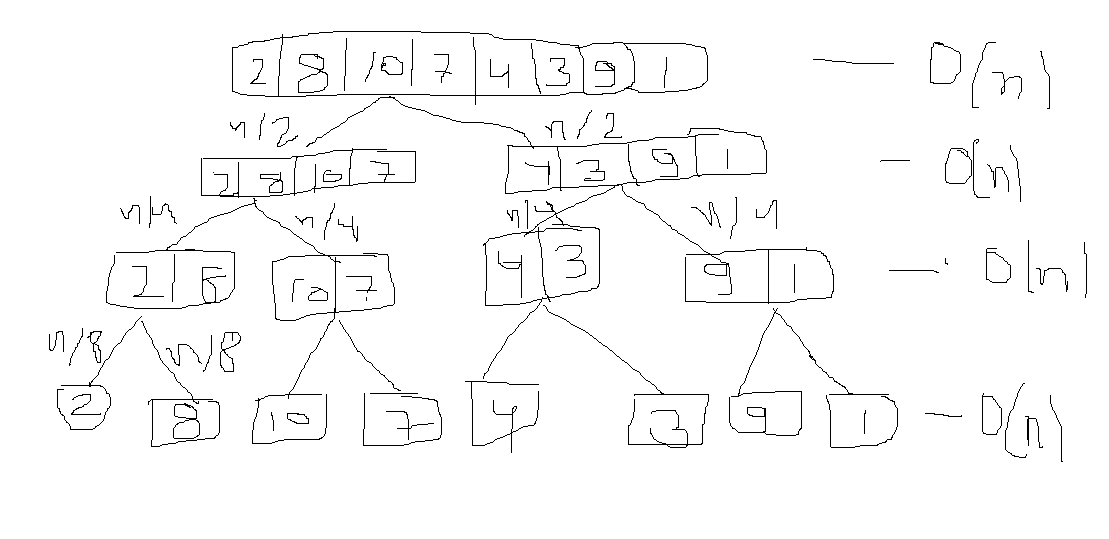 2 8 10 7 4 3 9 1 — O(n)
n/2 n/2
2 8 10 7 4 3 9 1 — O(n)
n/4 n/4 n/4 n/4
2 8 10 7 4 3 9 1 — O(n)
n/8 n/8
2 8 10 7 4 3 9 1 — O(n)